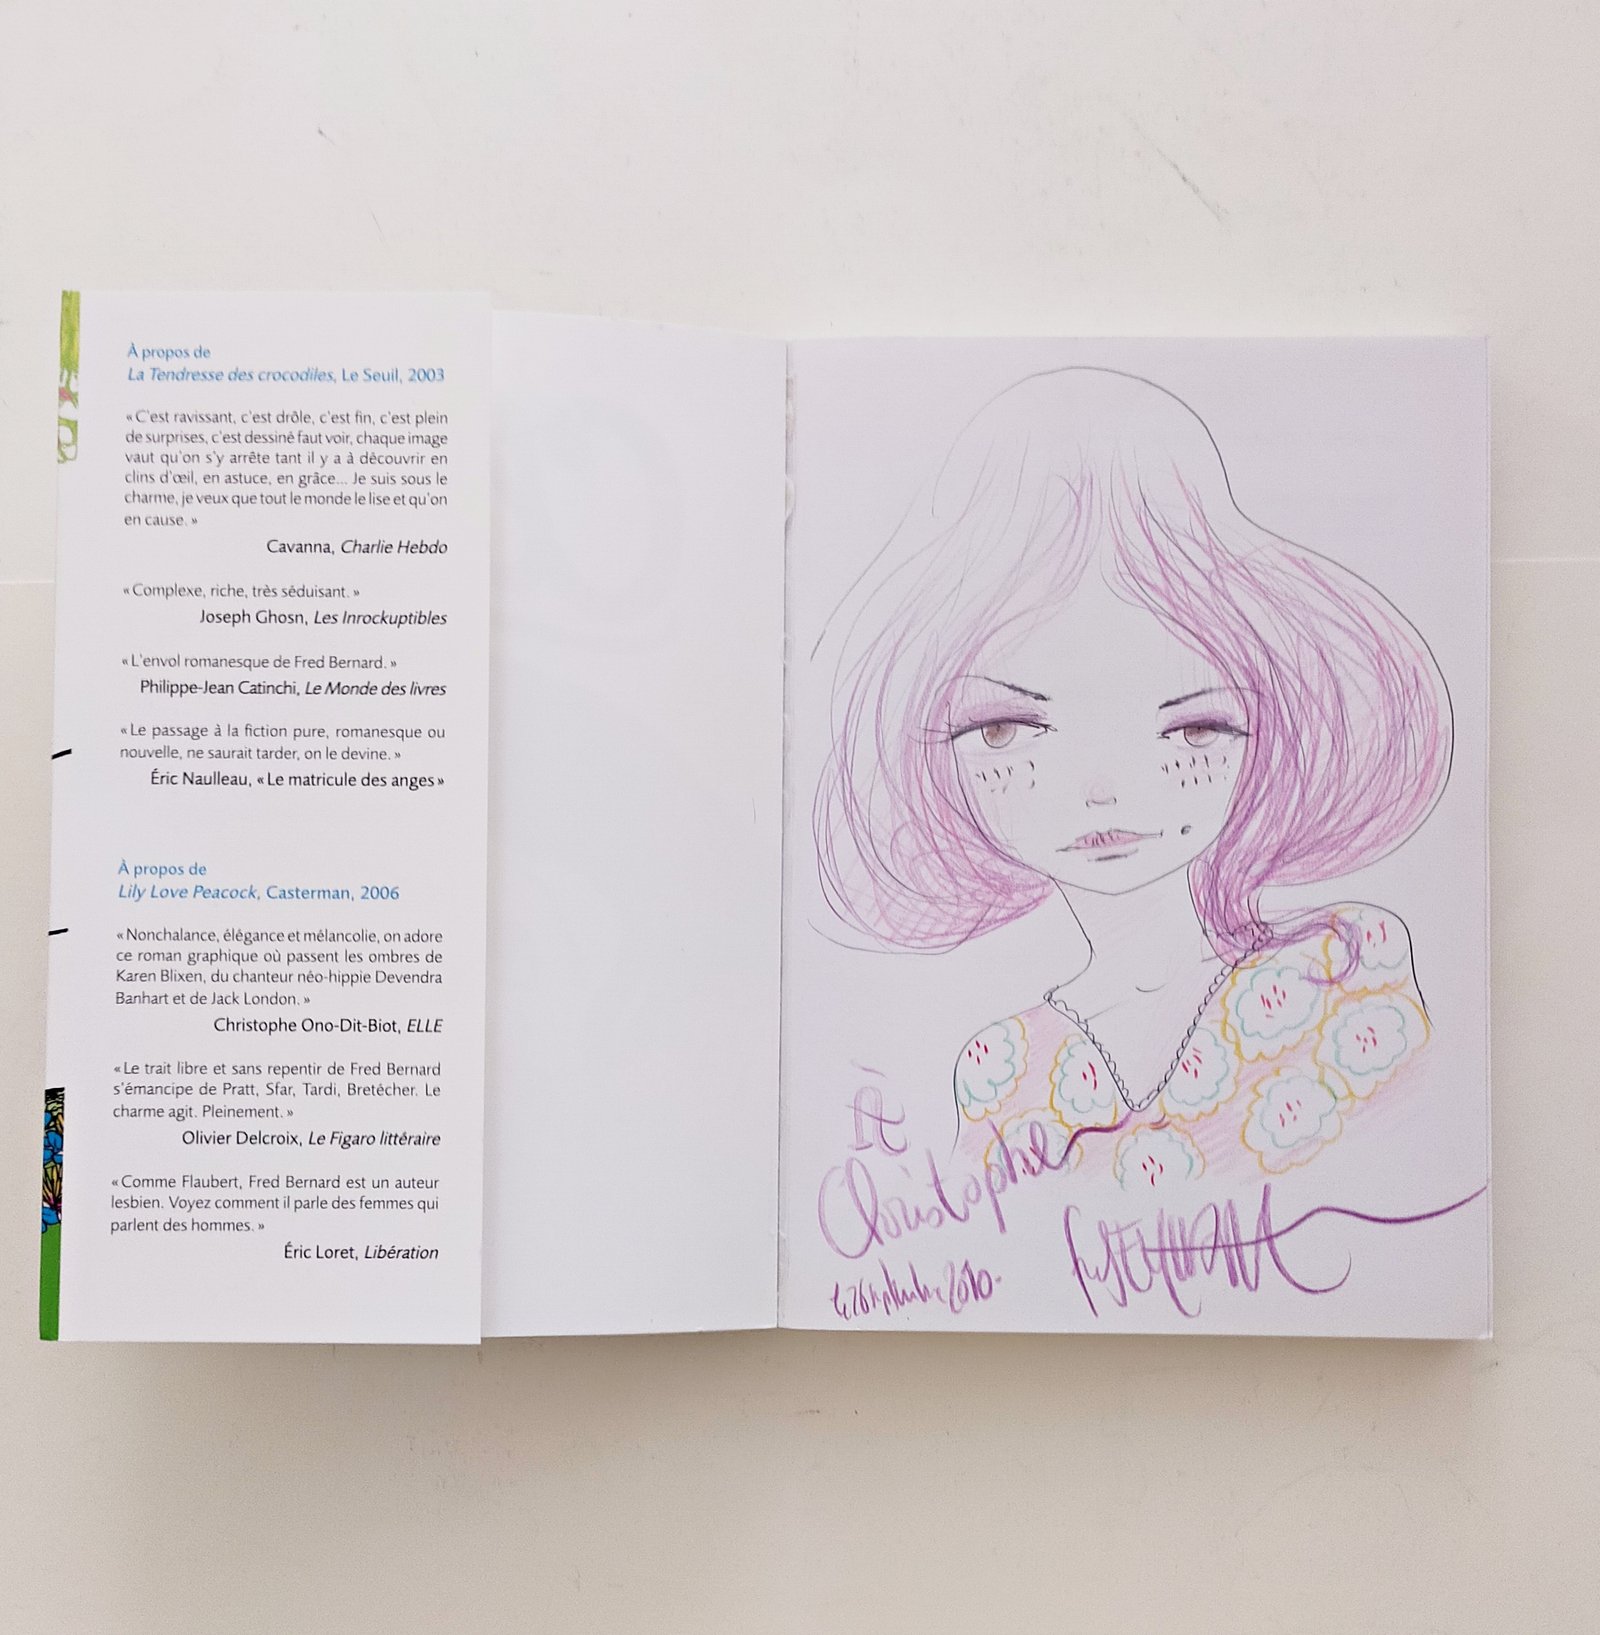 À propos de
La Tendresse des crocodiles, Le Seuil, 2003
« C'est ravissant, c'est drôle, c'est fin, c'est plein
de surprises, c'est dessiné faut voir, chaque image
vaut qu'on s'y arrête tant il y a à découvrir en
clins d'œil, en astuce, en grâce... Je suis sous le
charme, je veux que tout le monde le lise et qu'on
en cause. »
Cavanna, Charlie Hebdo
« Complexe, riche, très séduisant. »
Joseph Ghosn, Les Inrockuptibles
« L'envol romanesque de Fred Bernard. »
Philippe-Jean Catinchi, Le Monde des livres
« Le passage à la fiction pure, romanesque ou
nouvelle, ne saurait tarder, on le devine. »
Éric Naulleau, « Le matricule des anges »
À propos de
Lily Love Peacock, Casterman, 2006
« Nonchalance, élégance et mélancolie, on adore
ce roman graphique où passent les ombres de
Karen Blixen, du chanteur néo-hippie Devendra
Banhart et de Jack London. »
Christophe Ono-Dit-Biot, ELLE
« Le trait libre et sans repentir de Fred Bernard
s'émancipe de Pratt, Sfar, Tardi, Bretécher. Le
charme agit. Pleinement. »
Olivier Delcroix, Le Figaro littéraire
« Comme Flaubert, Fred Bernard est un auteur
lesbien. Voyez comment il parle des femmes qui
parlent des hommes. »
Éric Loret, Libération
À
Christophe
2010